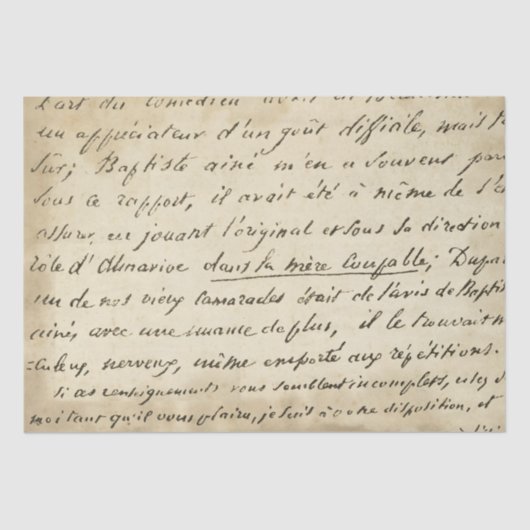 L'art du comédien avait en Beaumar
un appréciateur d'un goût difficile, mais t
sûr; Baptiste ainé m'en a souvent par
sous ce rapport, il avait été à même de s'e
assurer, en jouant l'original et sous sa direction
rôle d'Almaviva dans la mère Coupable; Dupa
un de nos vieux Camarades était de l'avis de Baptis
ainé, avec une nuance de plus, il le trouvait m
=culeux, nerveux, même emporté aux répétitions.
Si ces renseignements vous semblent incomplets, usez d
moi tant qu'il vous plaira, je suis à votre disposition, et